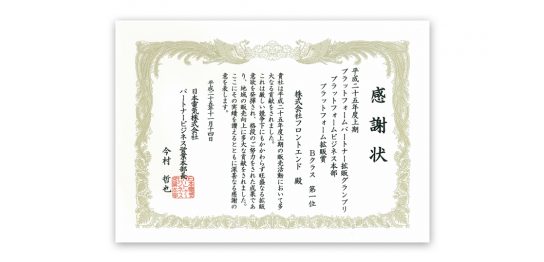 感謝状
平成二十五年度上期
プラットフォームパートナー拡販グランプリ
プラットフォームビジネス本部
プラットフォーム拡販賞
Bクラス 第一位
株式会社フロントエンド 殿
貴社は平成二十五年度上期の販売活動において多
大なる貢献をされました。
これは厳しい競争下にもかかわらず旺盛なる拡販
意欲を発揮され、格段のご努力をされた成果であ
り、地域の販売向上に多大な貢献をされました。
ここにその実績を讃えるとともに深甚なる感謝の
意を表します。
平成二十五年十一月十四日
日本電気株式会社
パートナービジネス営業本部長
今村 哲也